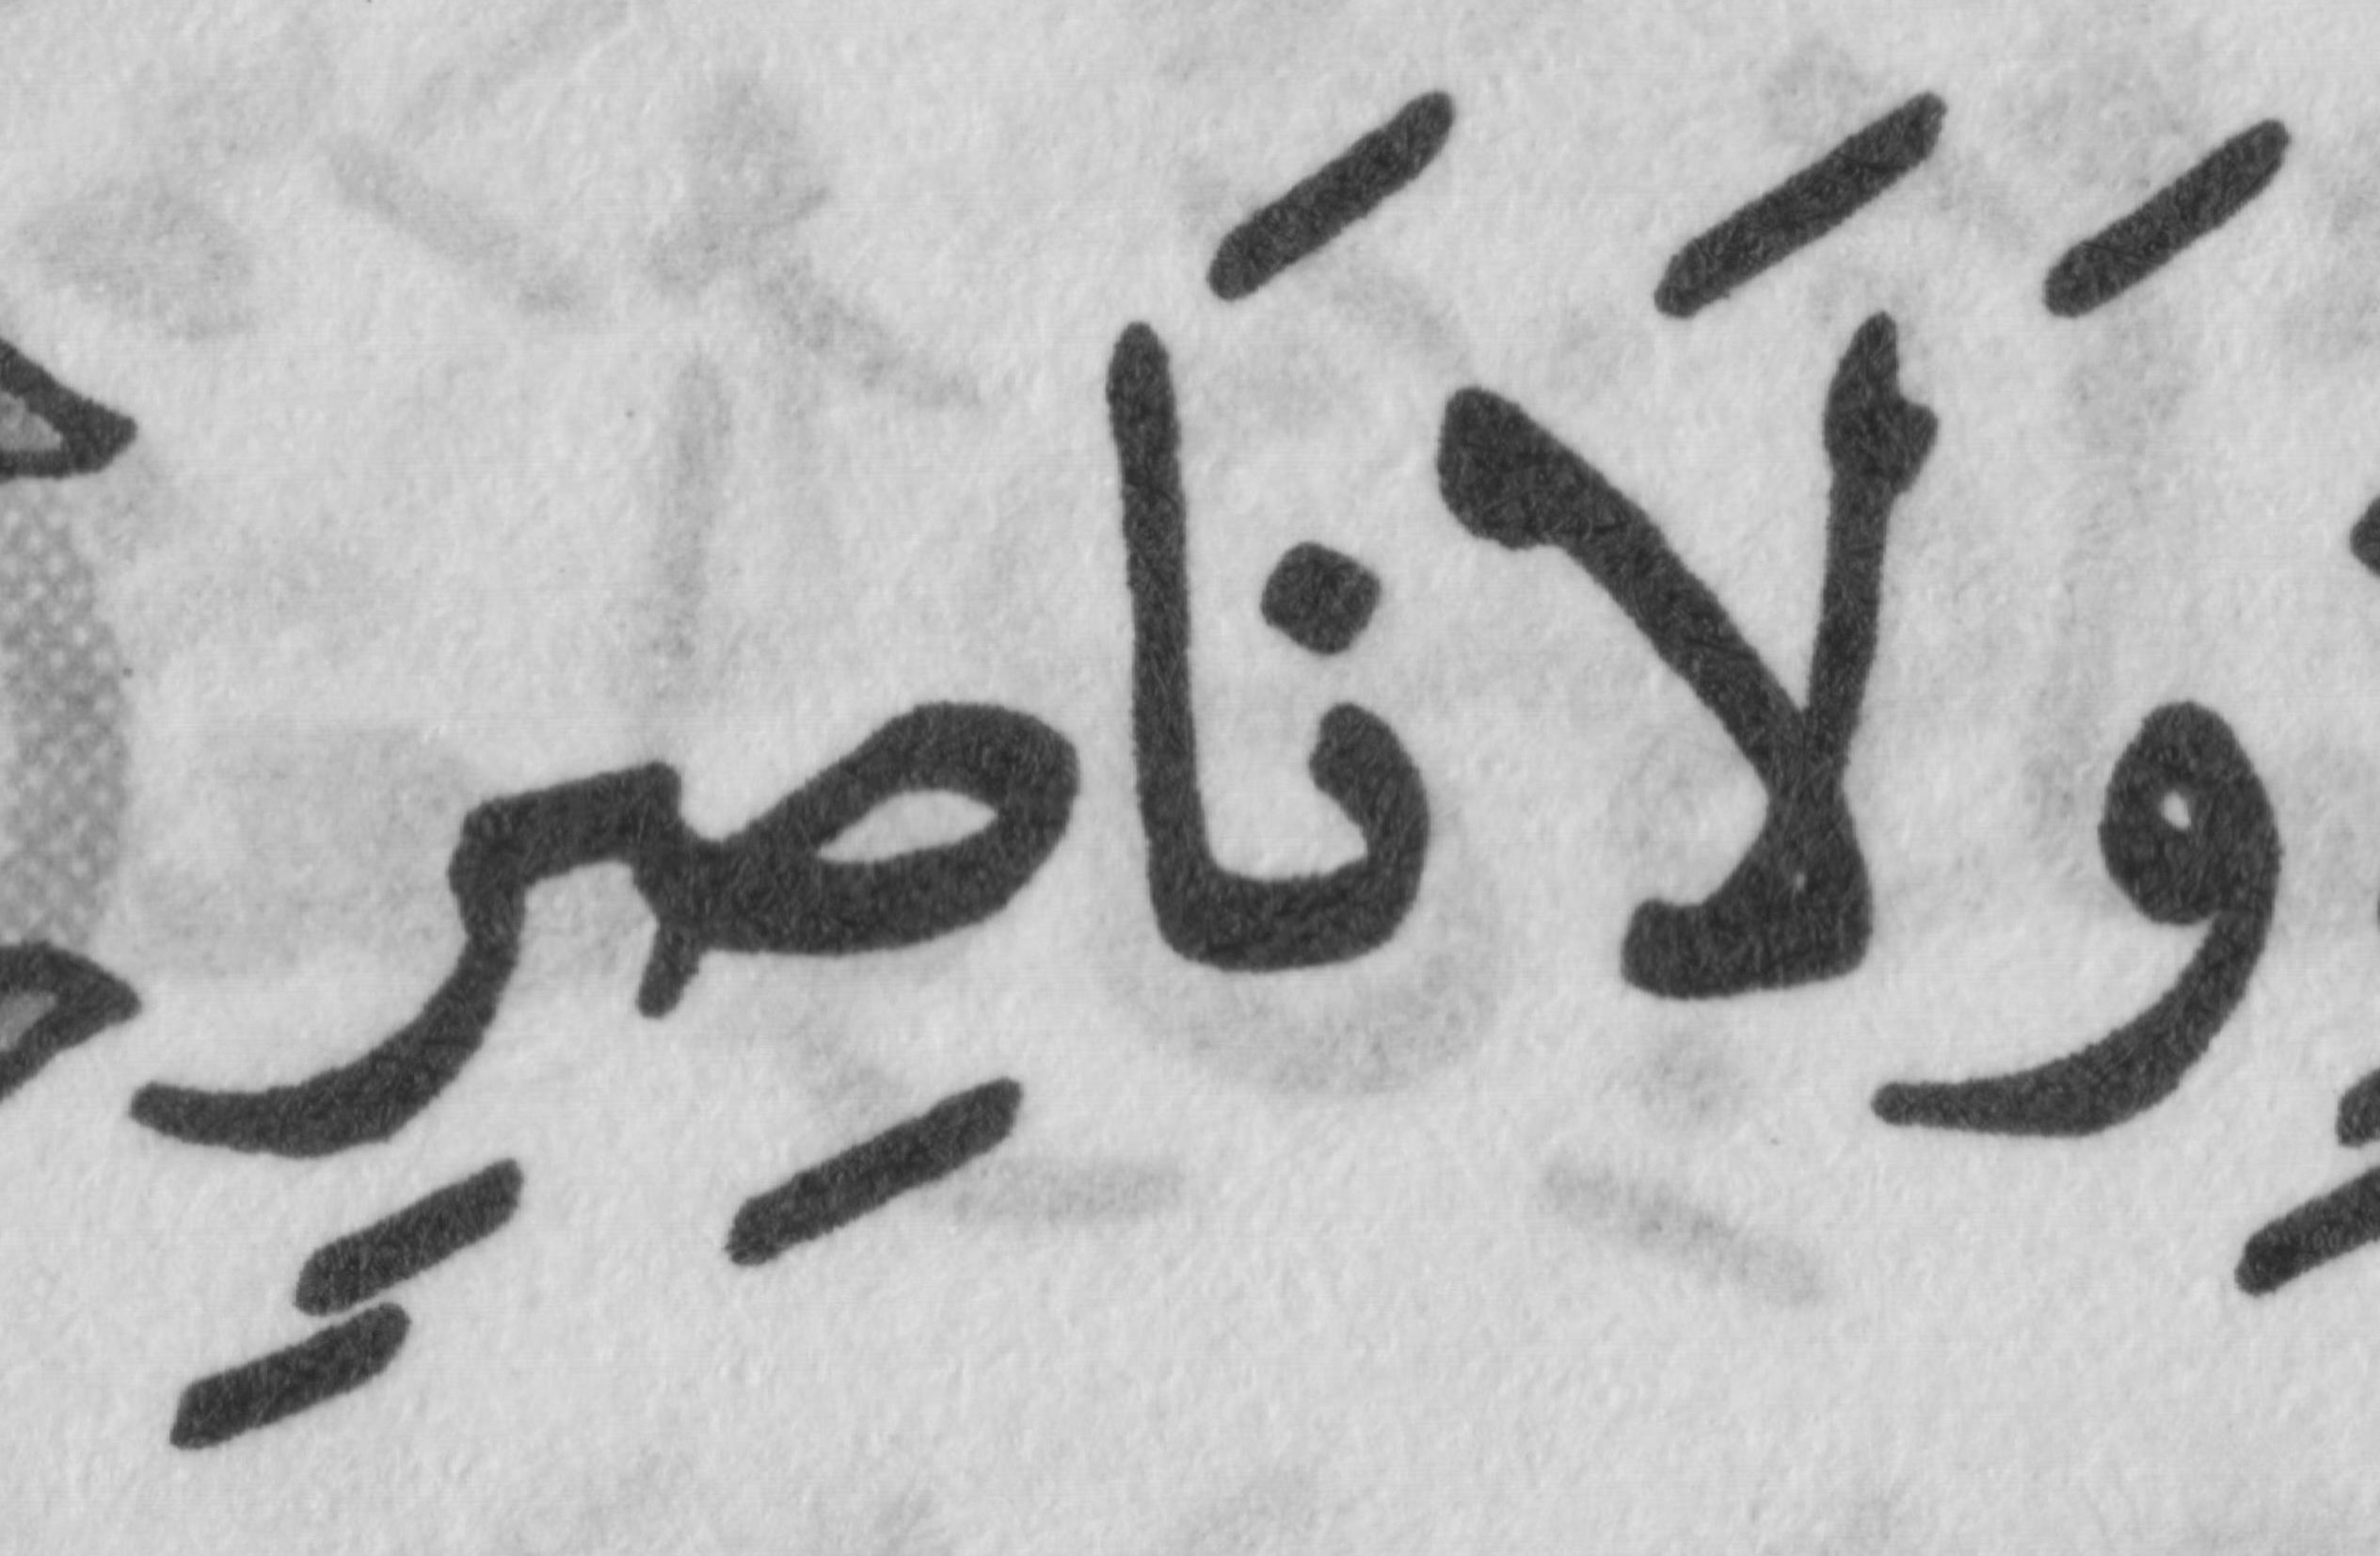 وَلَا نَاصِرٍ